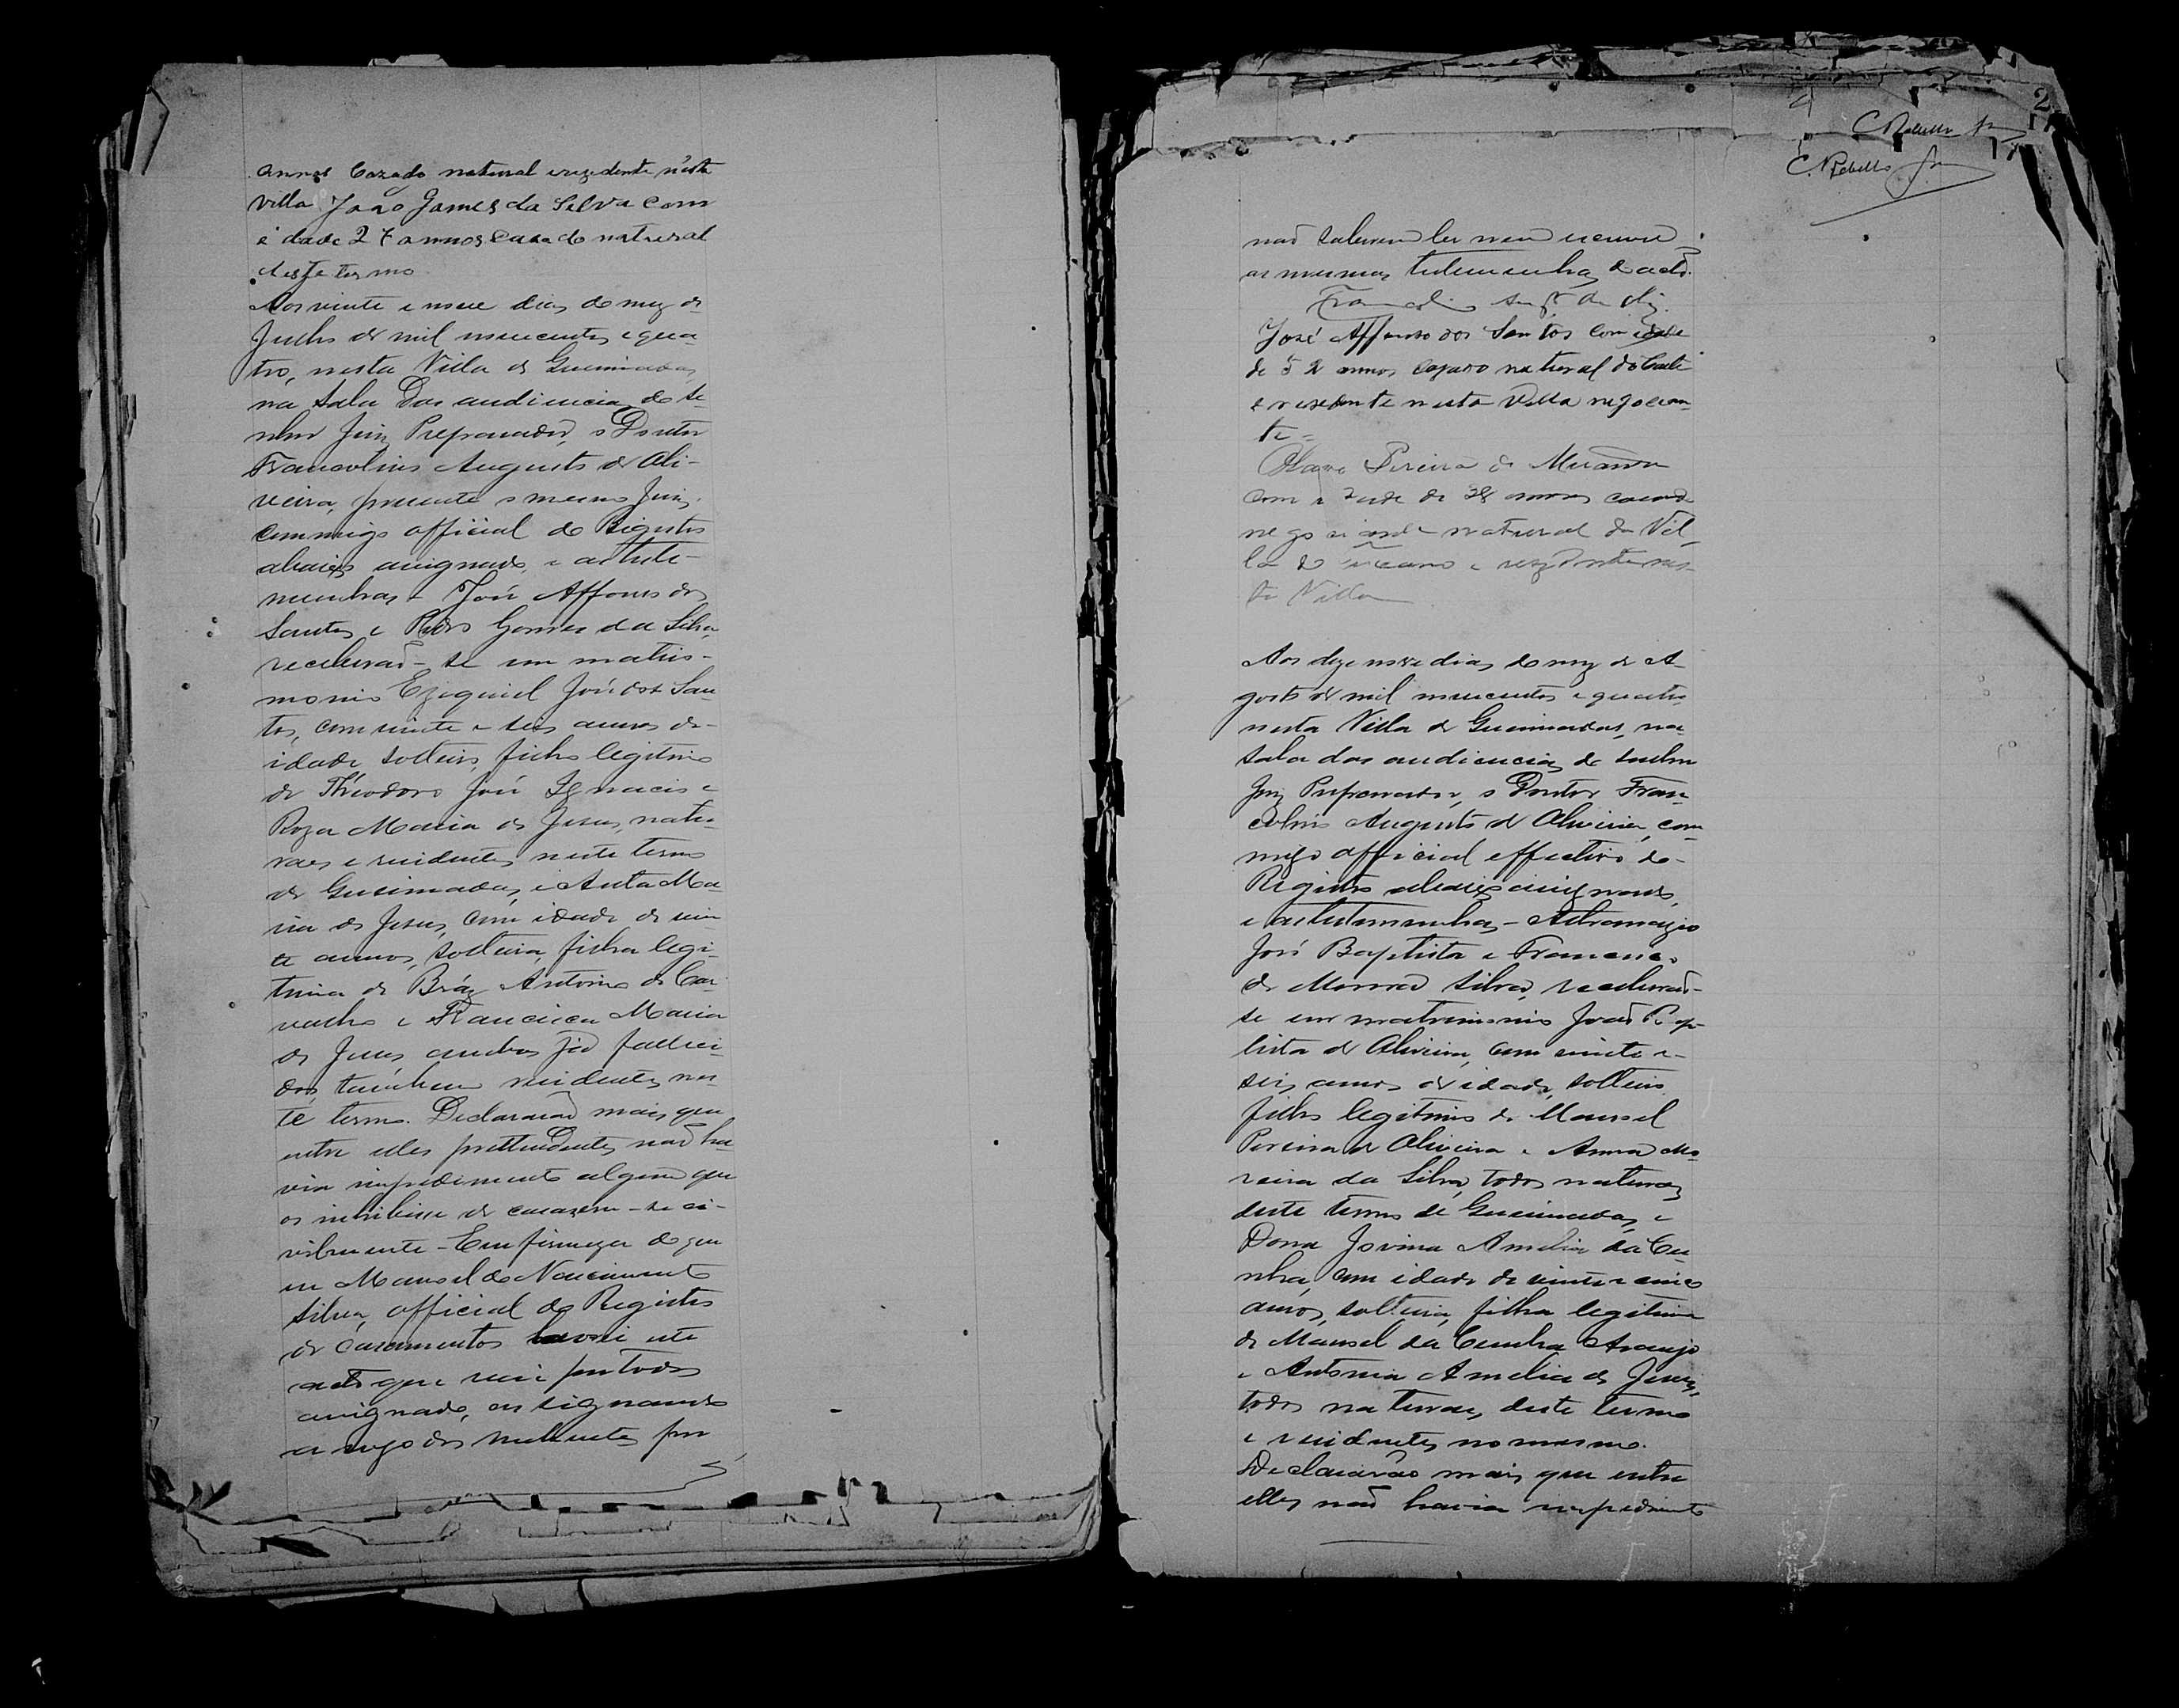 annos Cazado natural e rezidente nésta
villa João Gomes da Silva com
e dade 27 annos casado natural
deste termo
Aos vinte e nove dias do mez de
Julho de mil novecentos e qua-
tro, nesta Villa de Queimadas,
na sala das audiencias do Se-
nhor Juiz Preparador, o Doutor
Francolino Augusto de Oli-
veira, presente o mesmo Juiz,
commigo official do Registro
abaixo assignado, e as teste-
munhas - José Affonso dos
Santos e Pedro Gomes da Silva,
receberaõ-se em matri-
monio Ezequiel José dos San-
tos, com vinte e seis annos de
idade solteiro, filho legitimo
de Théodoro José Ignacio e
Roza Maria de Jesus, natu-
raes e residentes neste termo
de Queimadas, e Anta Ma-
ria de Jesus, com idade de vin-
te annos, solteira, filha legi-
tima de Bráz Antonio de Car-
valho e Francisca Maria
de Jesus ambos já falleci-
dos, tambem residentes nes-
te termo. Declararaõ mais que
entre elles prettendentes naõ ha-
via impedimento algum que
os inhibisse de casarem-se ci-
vilmente - Em firmeza do que
eu Manoel do Nascimento
Silva, official do Registro
de casamentos lavrei este
acto que vai por todos
assignado, assignando
a rogo dos nubentes por
2
C Rebello Jr
17
C. Rebello Jr
naõ saberem ler nem escrever
as mesmas testemunhas do acto.
José Affonso dos Santos com idade
de 52 annos Cazado natural do
e residente nesta Villa negocian-
te =
Pereira de Miranda
com idade de 28 annos casado
negociante natural da Vil-
la de e rezidente nes-
ta Villa
Aos deze nove dias do mez de A-
gosto de mil novecentos e quatro
nesta Villa de Queimadas, na
sala das audiencias do Senhor
Juiz Preparador, o Doutor Fran-
colino Augusto de Oliveira, com-
migo official effectivo do
Registro abaixo assignado,
e as testemunhas -
José Baptista e Francisco
de Silva, receberaõ-
se em matrimonio Joaõ Bap-
tista de Oliveira, com vinte e
seis annos de idade, solteiro
filho legitimo de Manoel
Pereira de Oliveira e Anna Mo-
reira da Silva, todos naturaes
deste termo de Queimadas, e
Dona Jovina Amelia da Cu-
nha, com idade de vinte e cinco
annos, solteira, filha legitima
de Manoel da Cunha Araujo
e Antonia Amelia de Jesus,
todos naturaes, deste termo
e residentes no mesmo.
Declararão mais que entre
elles naõ havia impedimento